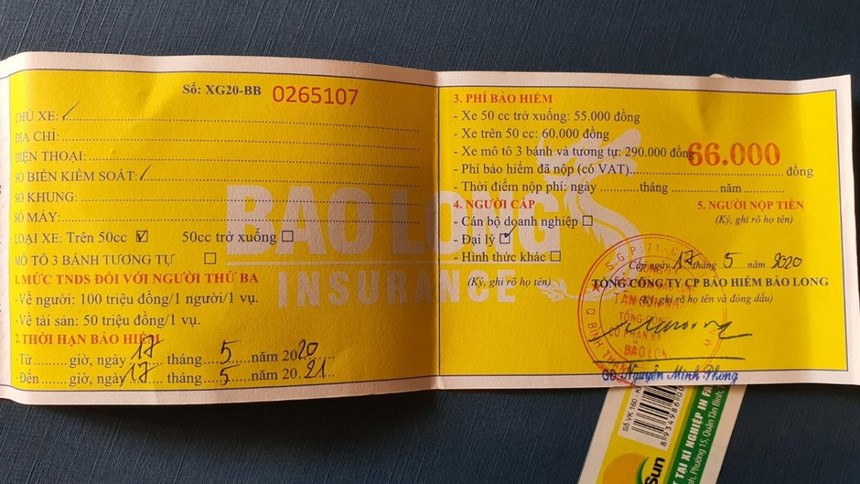 Số: XG20-BB 0265107
CHỦ XE:
ĐỊA CHỈ:
ĐIỆN THOẠI:
SỐ BIỂN KIỂM SOÁT:
SỐ KHUNG:
SỐ MÁY:
LOẠI XE: Trên 50cc ☑ 50cc trở xuống ☐
MÔ TÔ 3 BÁNH TƯƠNG TỰ ☐
1.MỨC TNDS ĐỐI VỚI NGƯỜI THỨ BA
-Về người: 100 triệu đồng/1 người/1 vụ.
-Về tài sản: 50 triệu đồng/1 vụ.
2.THỜI HẠN BẢO HIỂM
-Từ ...... giờ, ngày 17 tháng 5 năm 2020
-Đến ...... giờ, ngày 17 tháng 5 năm 20.21
BAO LONG
INSURANCE
3. PHÍ BẢO HIỂM
- Xe 50 cc trở xuống: 55.000 đồng
- Xe trên 50 cc: 60.000 đồng
- Xe mô tô 3 bánh và tương tự: 290.000 đồng
- Phí bảo hiểm đã nộp (có VAT) 66.000 đồng
- Thời điểm nộp phí: ngày ........ tháng ........ năm ........
4. NGƯỜI CẤP 5. NGƯỜI NỘP TIỀN
- Cán bộ doanh nghiệp ☐ (Ký, ghi rõ họ tên)
- Đại lý ☑
- Hình thức khác ☐
(Ký, ghi rõ họ tên) Cấp ngày 17 tháng 5 năm 2020
TỔNG CÔNG TY CP BẢO HIỂM BẢO LONG
(Ký, ghi rõ họ tên và đóng dấu)
TỔNG CÔNG
CỔ PHẦN BẢ
BẢO LON
GĐ. Nguyễn Minh Phong
Sun
T TẠI XÍ NGHIỆP IN FA
Phường 15, Quận Tân Bình